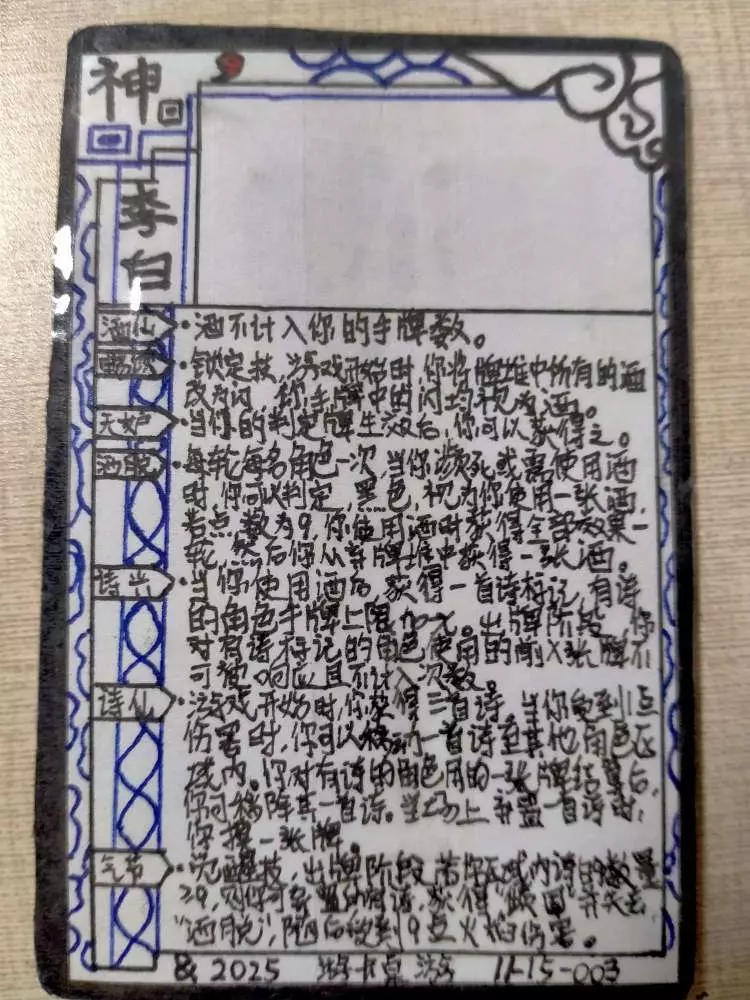 神
9
李白
酒仙
·酒不计入你的手牌数。
·锁定技,当游戏开始时,你将牌堆中所有的酒
改为闪,你手牌中的闪均视为酒。
天妒
·当你的判定牌生效后,你可以获得之。
酒脱
·每轮每名角色一次,当你濒死或需使用酒
时,你可以判定,黑色,视为你使用一张酒,
若点数为9,你使用酒时获得全部效果一
轮,然后你从弃牌堆中获得一张酒。
诗兴
·当你使用酒后,获得一首诗标记,有诗
的角色手牌上限加X。出牌阶段,你
对有诗标记的角色使用的前X张牌不
可被响应且不计入次数。
诗仙
·游戏开始时,你获得三首诗,当你受到1点
伤害时,你可以移动一首诗至其他角色区
域内。你对有诗的角色用的一张牌结算后,
你可移除其一首诗。当场上弃置一首诗时,
你摸一张牌。
气节
·觉醒技,出牌阶段,若你区域内诗的数量
≥9,则你可弃置所有诗,获得“ ”并失去
“酒脱”,随后受到9点火焰伤害。
& 2025 游卡桌游 11-15-003